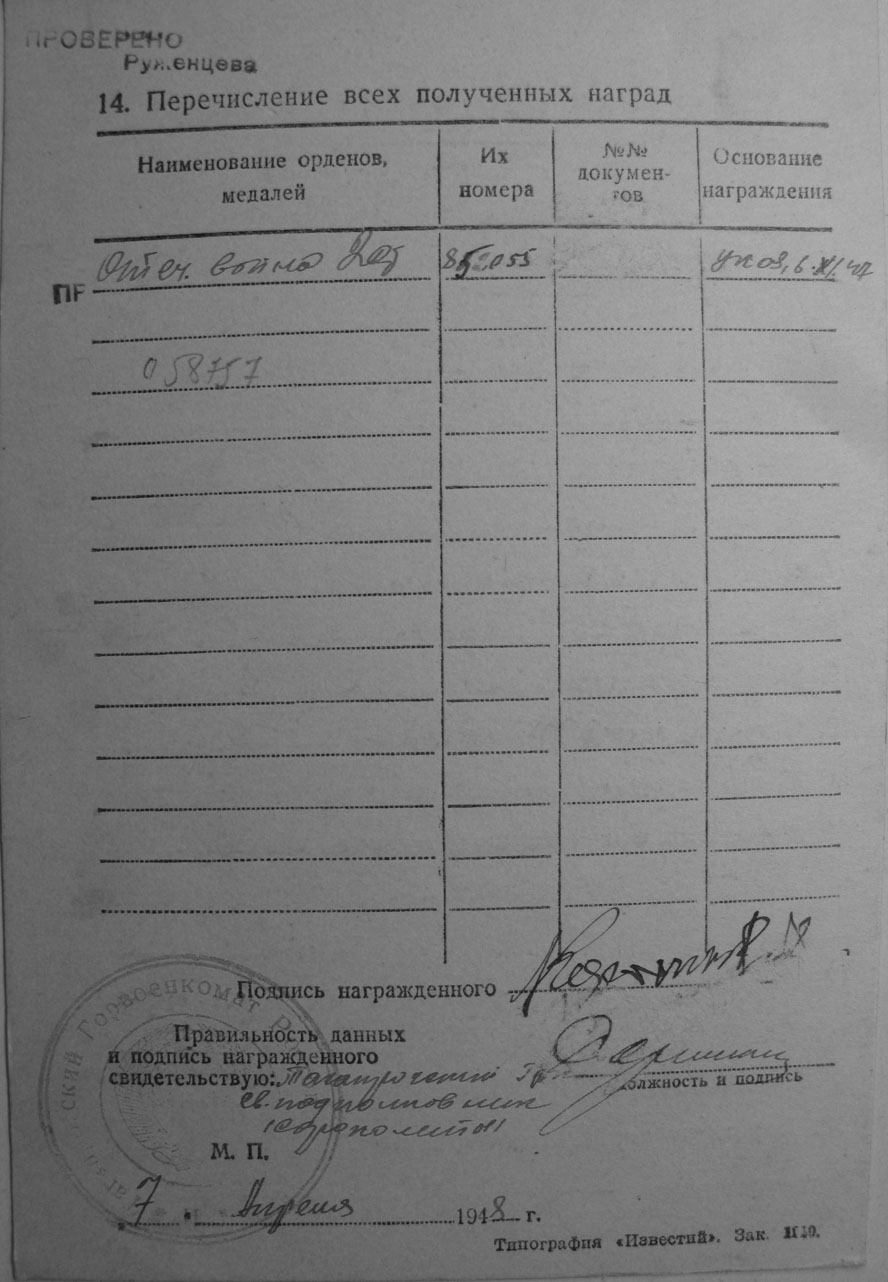 ПРОВЕРЕНО
Руженцева
14. Перечисление всех полученных наград
Наименование орденов, медалей
Их номера
№№ докумен-тов
Основание награждения
Отеч. война 2 ст 852055 6.XI.47
ПР
058757
Подпись награжденного
Правильность данных
и подпись награжденного
свидетельствую: Таганрогский
должность и подпись
подполковник
М. П.
7 " Апреля 1948 г.
Горвоенкомат
Типография «Известий». Зак.